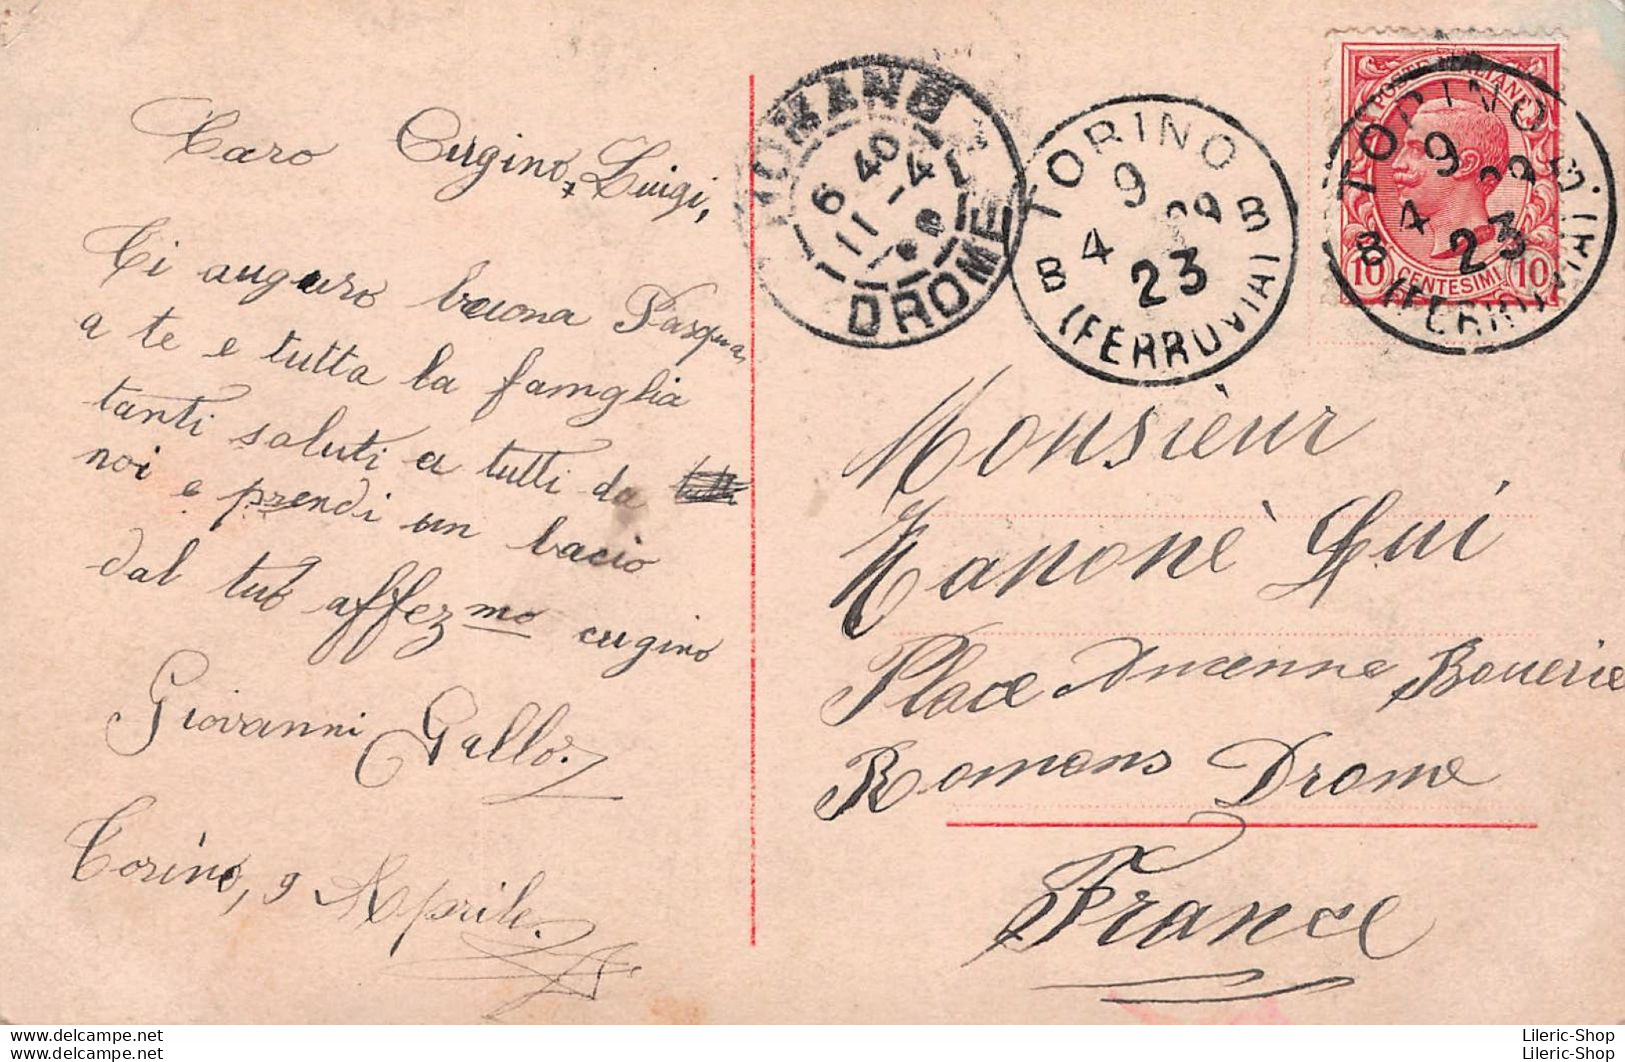 Caro Cugino, Luigi,
Ti auguro buona Pasqua,
a te e tutta la famglia
tanti saluti a tutti da
noi e prendi un bacio
dal tuo affezmo cugino
Giovanni Gallo.
Torino, 9 Aprile.
ROMANS
6 40
11 -4
DROME
TORINO
9
4 09
23
B B
(FERROVIA)
POSTE ITALIANE
10 CENTESIMI 10
TORINO
9
4 09
23
B B
(FERROVIA)
Monsieur
Zanonè Lui
Place Bouerie
Romans Drome
France
Lileric-Shop
Lileric-Shop